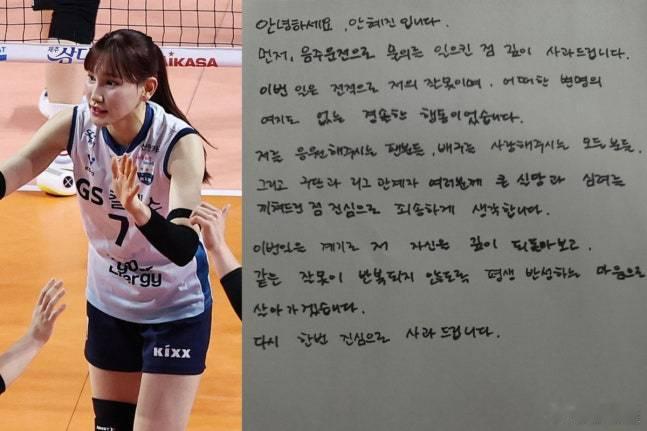 제주
삼다
MIKASA
GS 칼텍스
7
Energy
KIXX
안녕하세요, 안혜진 입니다.
먼저, 음주운전으로 물의를 일으킨 점 깊이 사과드립니다.
이번 일은 전적으로 저의 잘못이며, 어떠한 변명의
여지도 없는 경솔한 행동이었습니다.
저를 응원해주시는 팬분들, 배구를 사랑해주시는 모든 분들,
그리고 구단과 리그 관계자 여러분께 큰 실망과 심려를
끼쳐드린 점 진심으로 죄송하게 생각합니다.
이번일을 계기로 저 자신을 깊이 되돌아보고,
같은 잘못이 반복되지 않도록 평생 반성하는 마음으로
살아가겠습니다.
다시 한번 진심으로 사과드립니다.